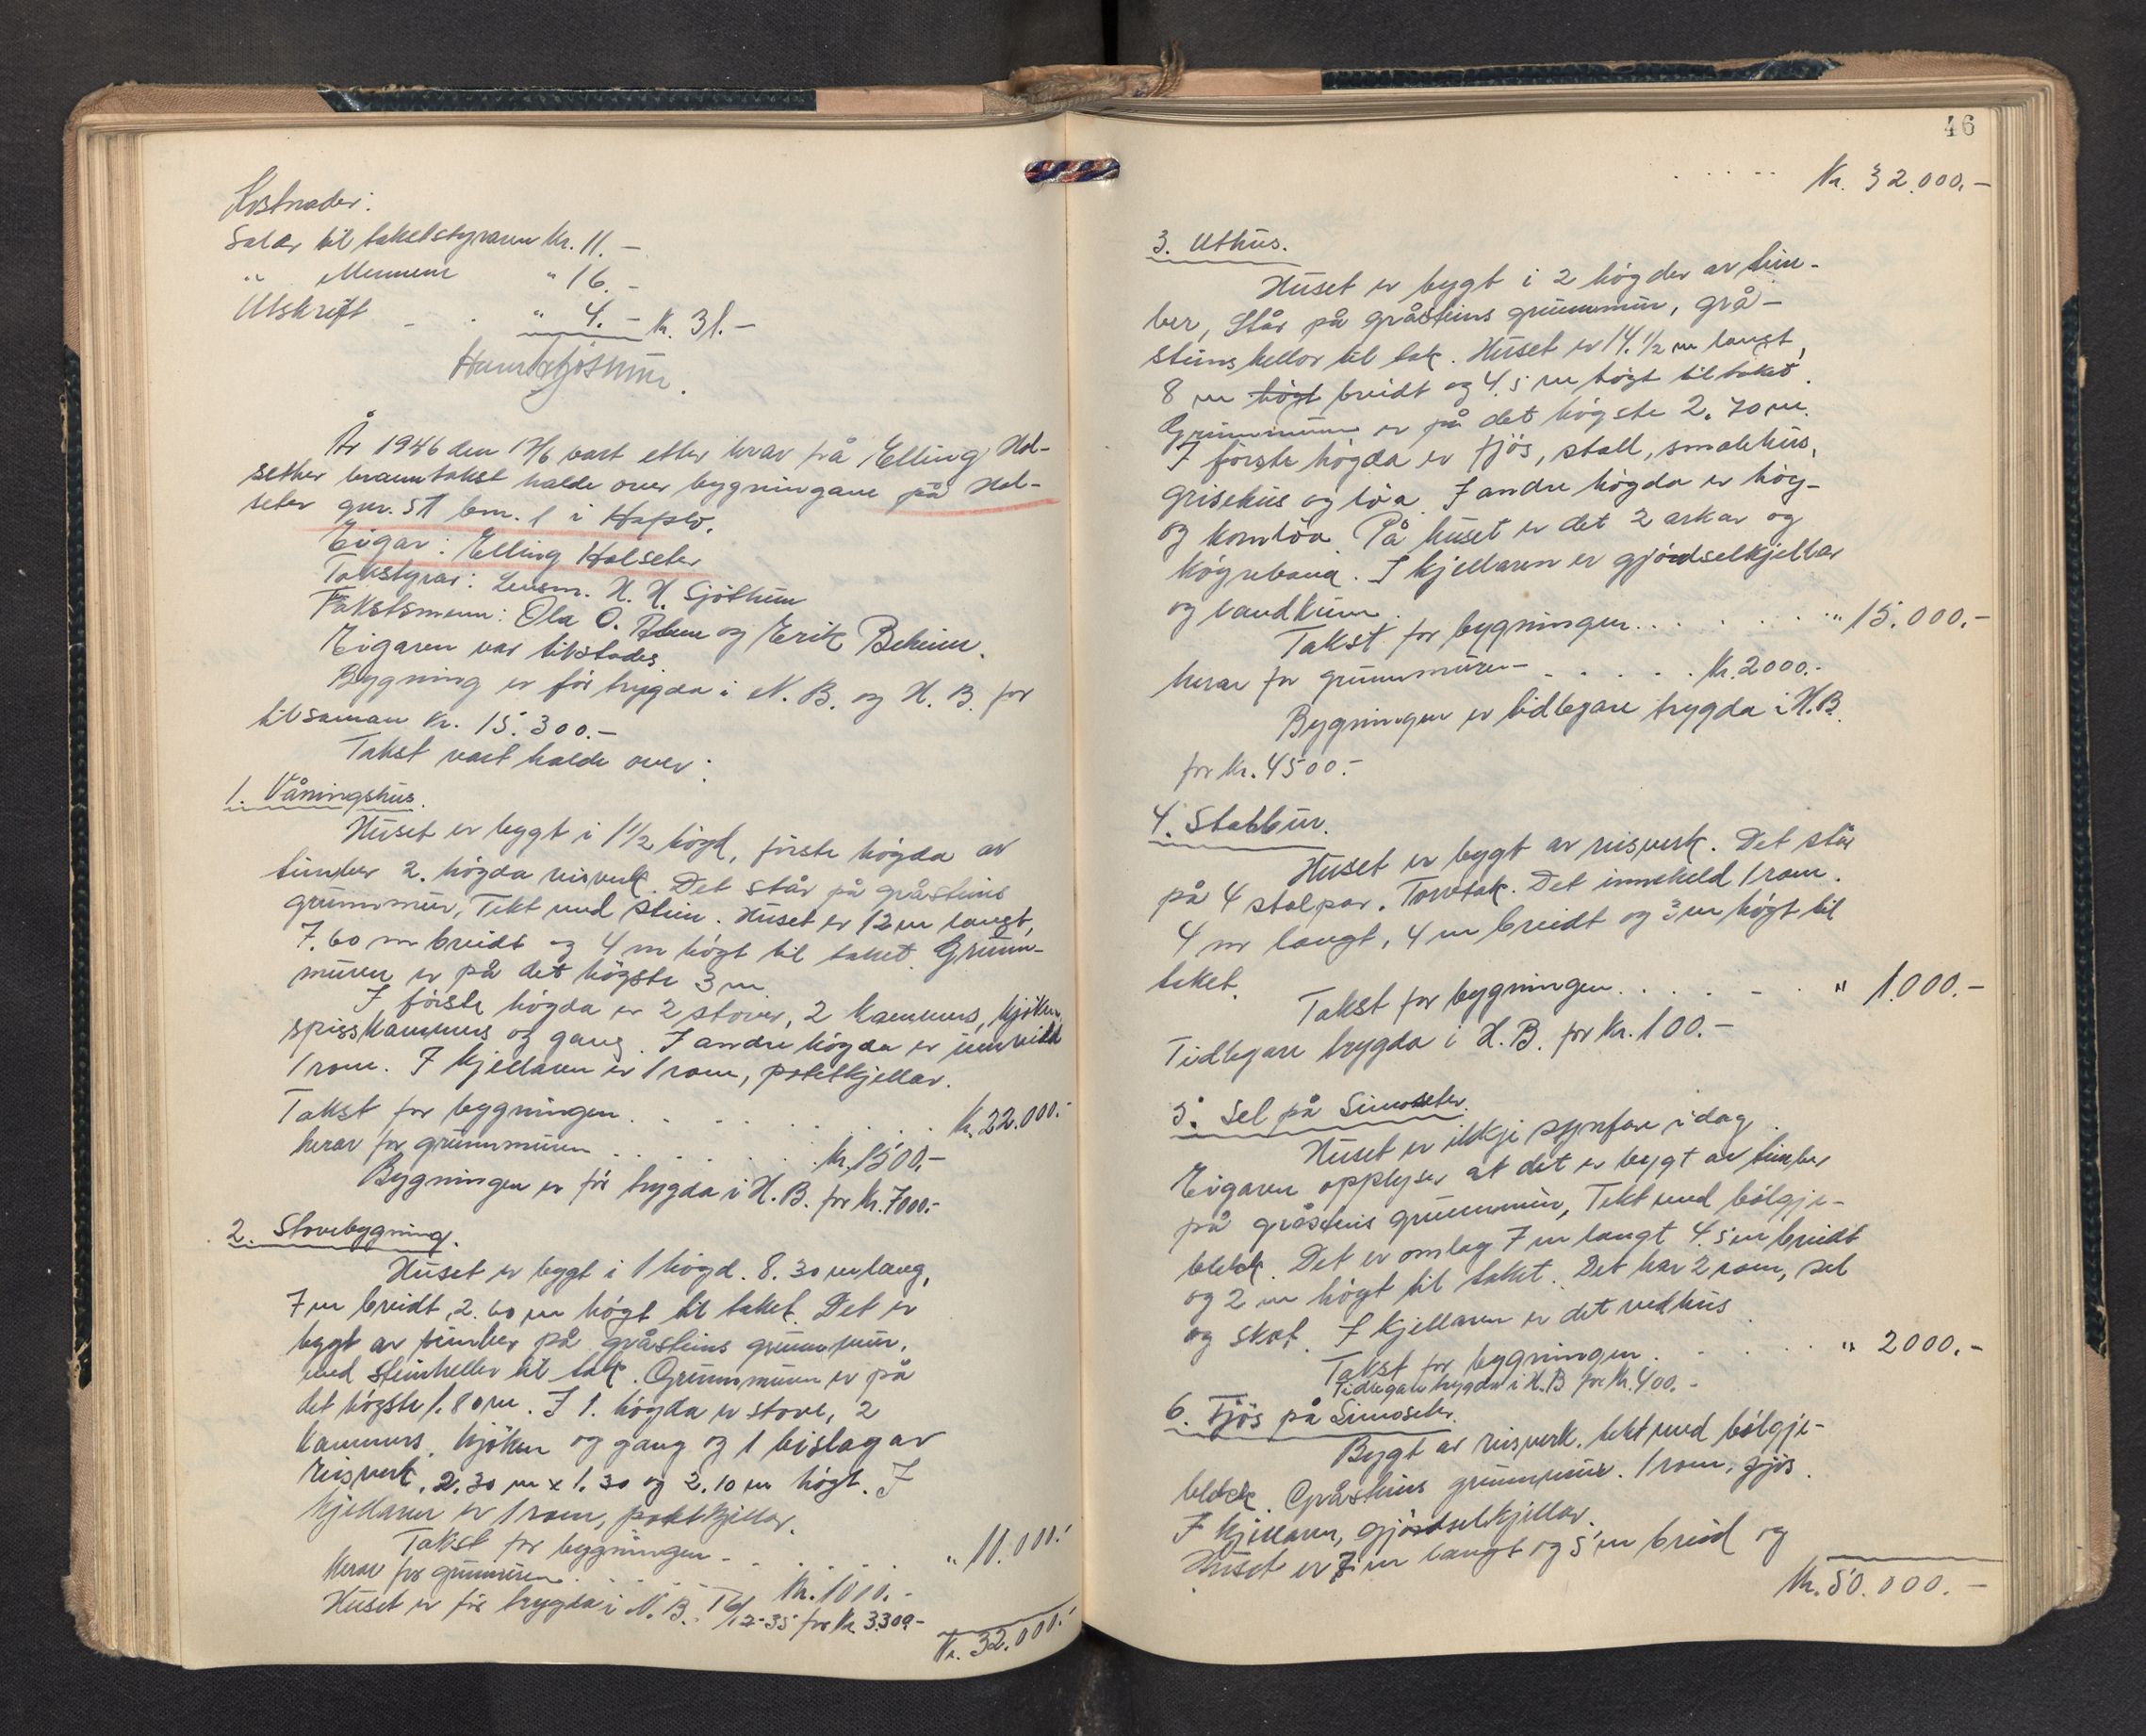 Kostnader:
Salær til takststyraren Kr. 11.-
" Mennene " 16.-
Utskrift - . " 4.- Kr. 31.-
År 1946 den 17/6 vart etter krav frå Elling Hol-
sether branntakst halde over bygningane på Hol-
seter gnr. 51 bnr. 1 i Hafslo.
Eigar: Elling Holseter
Takstyrar: Lensm. H. H. Sjøthun
Takstsmenn: Ola O. og Erik Beheim.
Eigaren var tilstades.
Bygning er før trygda i N. B. og H. B. for
tilsaman Kr. 15.300.-
Takst vart halde over:
1. Våningshus.
Huset er bygt i 1 1/2 høgd, første høgda av
timber 2. høgda reisverk. Det står på gråsteins
grunnmur, Tekt med stein. Huset er 12 m langt,
7.60 m breidt og 4 m høgt til taket. Grunn-
muren er på det høgste 3 m.
I første høgda er 2 stover, 2 kammers, kjøken,
spisskammers og gang. I andre høgda er innreidd
1 rom. I kjellaren er 1 rom, potetkjellar.
Takst for bygningen . . . . . . Kr. 22.000.-
herav for grunnmuren . . . . . Kr. 1500,-
Bygningen er før trygda i H. B. for Kr. 7000.-
2. Stovebygning.
Huset er bygt i 1 høgd. 8.30 m lang,
7 m breidt, 2.60 m høgt til taket. Det er
bygt av timber på gråsteins grunnmur,
med steinheller til tak. Grunnmuren er på
det høgste 1.80 m. I 1. høgda er stove, 2
kammers, kjøken og gang og 1 bislag av
reisverk, 2.30 m x 1.30 og 2.10 m høgt. I
kjellaren er 1 rom, potetkjellar.
Takst for bygningen - . . . . " 11.000.-
Herav for grunnmuren . . . . Kr. 1010.-
Huset er før trygda i N. B. -35 for Kr. 3300-
Kr. 32.000.-
46
. . . . . Kr. 32.000.-
3. Uthus.
Huset er bygt i 2 høgder av tim-
ber, Står på gråsteins grunnmur, grå-
steins hellor til tak. Huset er 14.1/2 m langt,
8 m høgt breidt og 4.5 m høgt til taket.
Grunnmuren er på det høgste 2.70 m.
I første høgda er fjøs, stall, smalehus,
grisehus og løa. I andre høgda er høy-
og kornløa. På huset er det 2 arkar og
høgrebana. I kjellaren er gjødselkjellar
og landkum.
Takst for bygningen . . . . . " 15.000.-
herav for grunnmuren - . . . . Kr. 2000.-
Bygningen er tidlegare trygda i H.B.
for Kr. 4500.-
4. Stabbur.
Huset er bygt av reisverk. Det står
på 4 stolpar. Torvtak. Det inneheld 1 rom.
4 m langt, 4 m breidt og 3 m høgt til
taket.
Takst for bygningen . . . . - . " 1.000.-
Tidlegare trygda i H.B. for Kr. 100.-
5. Sel på Simoseter.
Huset er ikkje synfare i dag.
Eigaren opplyser at det er bygt av timber
på gråsteins grunnmur, Tekt med bølgje-
blekk. Det er omlag 7 m langt 4.5 m breidt
og 2 m høgt til taket. Det har 2 rom, sel
og skot. I kjellaren er det vedhus.
Takst for bygningen . . . . . " 2000,-
Tidlegare trygda i H.B for Kr. 400.-
6. Fjøs på Simoseter.
Bygt av reisverk, tekt med bølgje-
blekk. Gråsteins grunnmur. 1 rom, fjøs.
I kjellaren, gjødselkjellar.
Huset er 7 m langt og 5 m breid og
Kr. 50.000.-